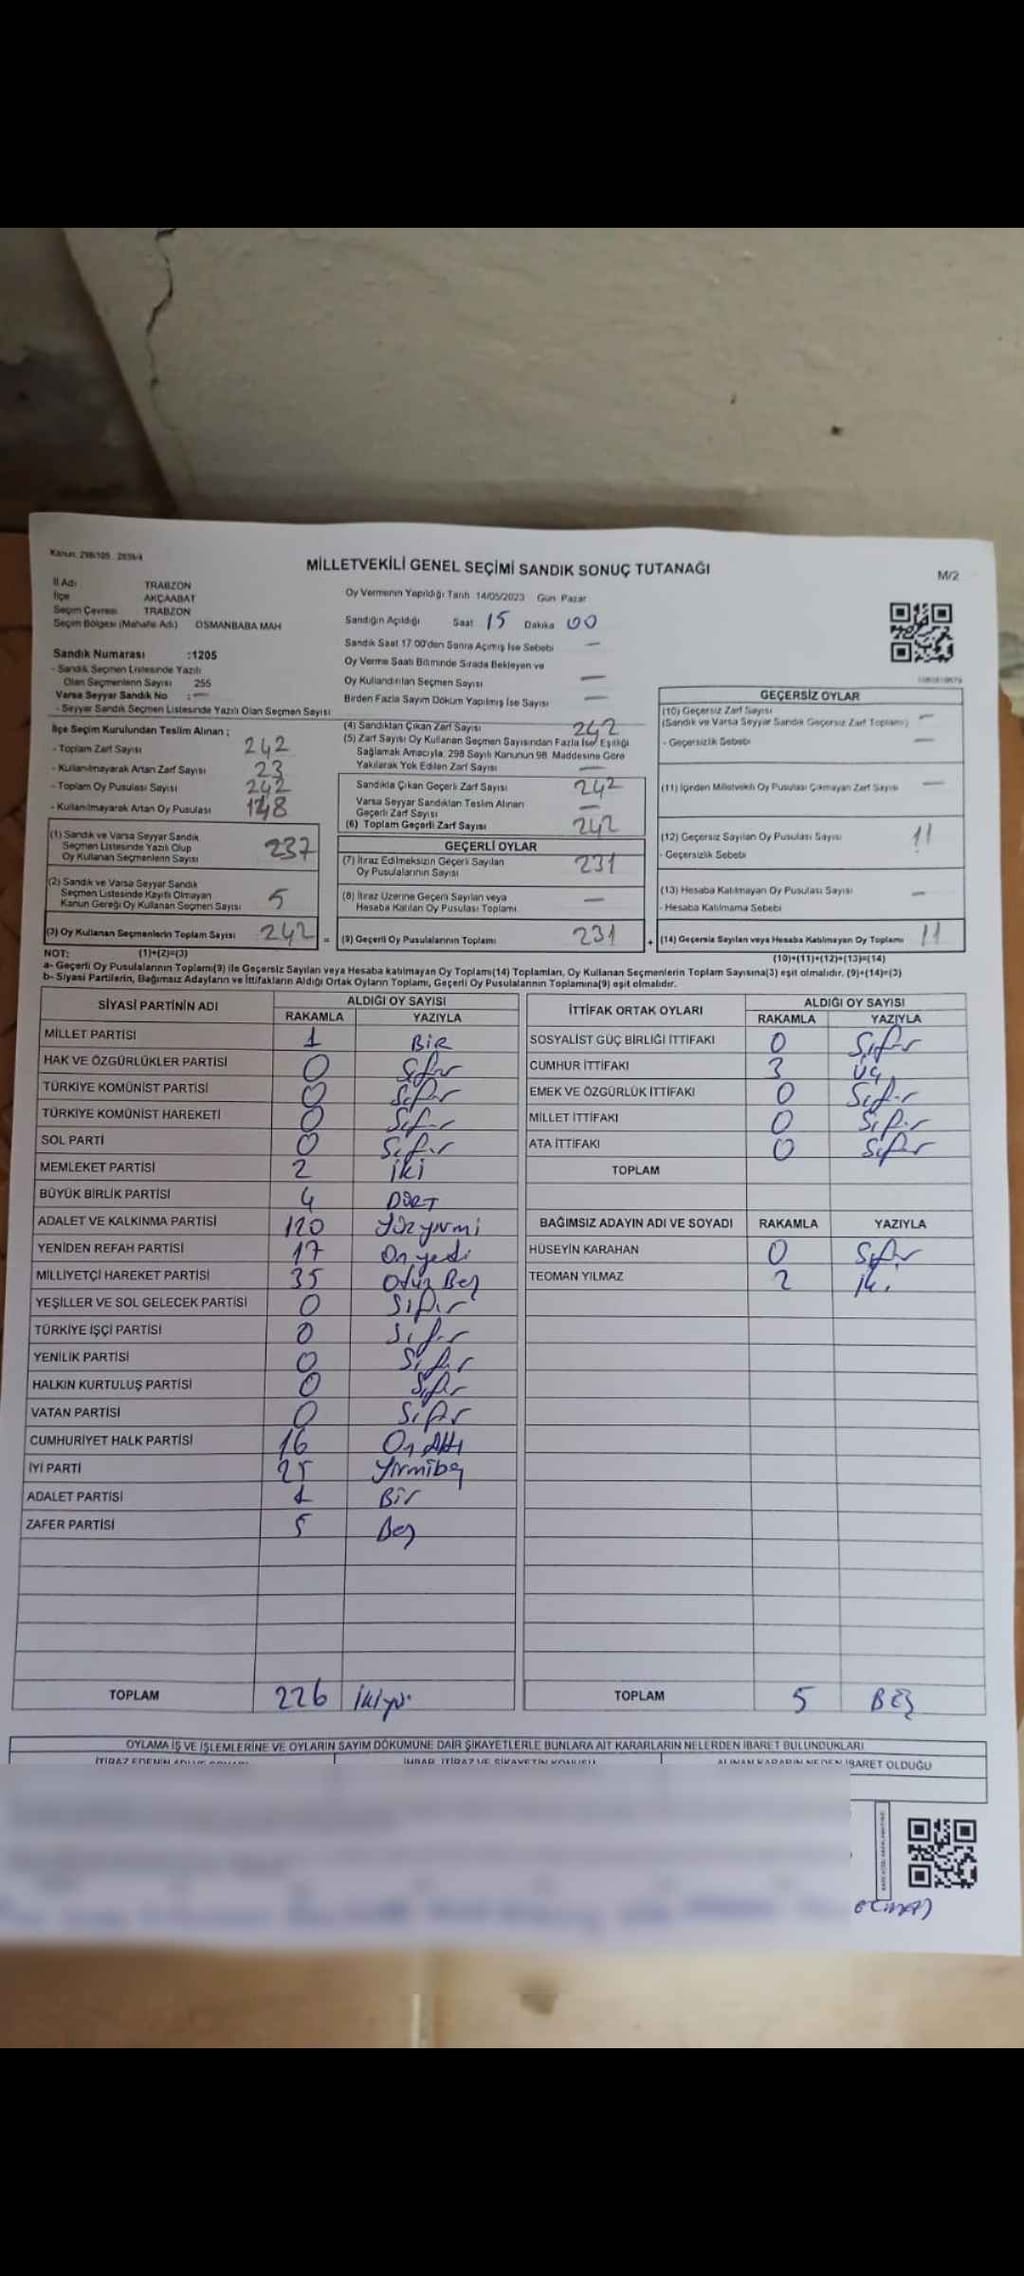 Kanun: 298/105 2839/4
MİLLETVEKİLİ GENEL SEÇİMİ SANDIK SONUÇ TUTANAĞI
M/2
İl Adı TRABZON
İlçe AKÇAABAT
Seçim Çevresi TRABZON
Seçim Bölgesi (Mahalle Adı) OSMANBABA MAH
Sandık Numarası :1205
- Sandık Seçmen Listesinde Yazılı
Olan Seçmenlerin Sayısı 255
Varsa Seyyar Sandık No : —
- Seyyar Sandık Seçmen Listesinde Yazılı Olan Seçmen Sayısı
Oy Vermenin Yapıldığı Tarih 14/05/2023 Gün Pazar
Sandığın Açıldığı Saat 15 Dakika 00
Sandık Saat 17.00'den Sonra Açılmış İse Sebebi —
Oy Verme Saati Bitiminde Sırada Bekleyen ve
Oy Kullandırılan Seçmen Sayısı —
Birden Fazla Sayım Döküm Yapılmış İse Sayısı —
İlçe Seçim Kurulundan Teslim Alınan :
- Toplam Zarf Sayısı 242
- Kullanılmayarak Artan Zarf Sayısı 23
- Toplam Oy Pusulası Sayısı 242
- Kullanılmayarak Artan Oy Pusulası
(1) Sandık ve Varsa Seyyar Sandık
Seçmen Listesinde Yazılı Olup
Oy Kullanan Seçmenlerin Sayısı 237
(2) Sandık ve Varsa Seyyar Sandık
Seçmen Listesinde Kayıtlı Olmayan
Kanun Gereği Oy Kullanan Seçmen Sayısı 5
(3) Oy Kullanan Seçmenlerin Toplam Sayısı 242 =
(1)+(2)=(3)
(4) Sandıktan Çıkan Zarf Sayısı 242
(5) Zarf Sayısı Oy Kullanan Seçmen Sayısından Fazla İse, Eşitliği
Sağlamak Amacıyla, 298 Sayılı Kanunun 98. Maddesine Göre
Yakılarak Yok Edilen Zarf Sayısı —
Sandıkta Çıkan Geçerli Zarf Sayısı 242
Varsa Seyyar Sandıktan Teslim Alınan
Geçerli Zarf Sayısı —
(6) Toplam Geçerli Zarf Sayısı 242
GEÇERLİ OYLAR
(7) İtiraz Edilmeksizin Geçerli Sayılan
Oy Pusulalarının Sayısı 231
(8) İtiraz Üzerine Geçerli Sayılan veya
Hesaba Katılan Oy Pusulası Toplamı —
(9) Geçerli Oy Pusulalarının Toplamı 231 +
GEÇERSİZ OYLAR
(10) Geçersiz Zarf Sayısı —
(Sandık ve Varsa Seyyar Sandık Geçersiz Zarf Toplamı)
- Geçersizlik Sebebi —
(11) İçinden Milletvekili Oy Pusulası Çıkmayan Zarf Sayısı —
(12) Geçersiz Sayılan Oy Pusulası Sayısı 11
- Geçersizlik Sebebi
(13) Hesaba Katılmayan Oy Pusulası Sayısı —
- Hesaba Katılmama Sebebi
(14) Geçersiz Sayılan veya Hesaba Katılmayan Oy Toplamı 11
(10)+(11)+(12)+(13)=(14)
NOT:
a- Geçerli Oy Pusulalarının Toplamı(9) ile Geçersiz Sayılan veya Hesaba katılmayan Oy Toplamı(14) Toplamları, Oy Kullanan Seçmenlerin Toplam Sayısına(3) eşit olmalıdır. (9)+(14)=(3)
b- Siyasi Partilerin, Bağımsız Adayların ve İttifakların Aldığı Ortak Oyların Toplamı, Geçerli Oy Pusulalarının Toplamına(9) eşit olmalıdır.
SİYASİ PARTİNİN ADI ALDIĞI OY SAYISI
RAKAMLA YAZIYLA
MİLLET PARTİSİ 1 BİR
HAK VE ÖZGÜRLÜKLER PARTİSİ 0 Sıfır
TÜRKİYE KOMÜNİST PARTİSİ 0 Sıfır
TÜRKİYE KOMÜNİST HAREKETİ 0 Sıfır
SOL PARTİ 0 Sıfır
MEMLEKET PARTİSİ 2 iki
BÜYÜK BİRLİK PARTİSİ 4 DÖRT
ADALET VE KALKINMA PARTİSİ 120 Yüzyirmi
YENİDEN REFAH PARTİSİ 17 Onyedi
MİLLİYETÇİ HAREKET PARTİSİ 35 Otuz Beş
YEŞİLLER VE SOL GELECEK PARTİSİ 0 Sıfır
TÜRKİYE İŞÇİ PARTİSİ 0 Sıfır
YENİLİK PARTİSİ 0 Sıfır
HALKIN KURTULUŞ PARTİSİ 0 Sıfır
VATAN PARTİSİ 0 Sıfır
CUMHURİYET HALK PARTİSİ 16 On Altı
İYİ PARTİ 25 Yirmibeş
ADALET PARTİSİ 1 Bir
ZAFER PARTİSİ 5 Beş
TOPLAM 226
İTTİFAK ORTAK OYLARI ALDIĞI OY SAYISI
RAKAMLA YAZIYLA
SOSYALİST GÜÇ BİRLİĞİ İTTİFAKI 0 Sıfır
CUMHUR İTTİFAKI 3 üç
EMEK VE ÖZGÜRLÜK İTTİFAKI 0 Sıfır
MİLLET İTTİFAKI 0 Sıfır
ATA İTTİFAKI 0 Sıfır
TOPLAM
BAĞIMSIZ ADAYIN ADI VE SOYADI RAKAMLA YAZIYLA
HÜSEYİN KARAHAN 0 Sıfır
TEOMAN YILMAZ 2 iki
TOPLAM 5 BEŞ
OYLAMA İŞ VE İŞLEMLERİNE VE OYLARIN SAYIM DÖKÜMÜNE DAİR ŞİKAYETLERLE BUNLARA AİT KARARLARIN NELERDEN İBARET BULUNDUKLARI
İTİRAZ EDENİN ADI VE SOYADI İHBAR, İTİRAZ VE ŞİKAYETİN KONUSU ALINAN KARARIN NEDEN İBARET OLDUĞU